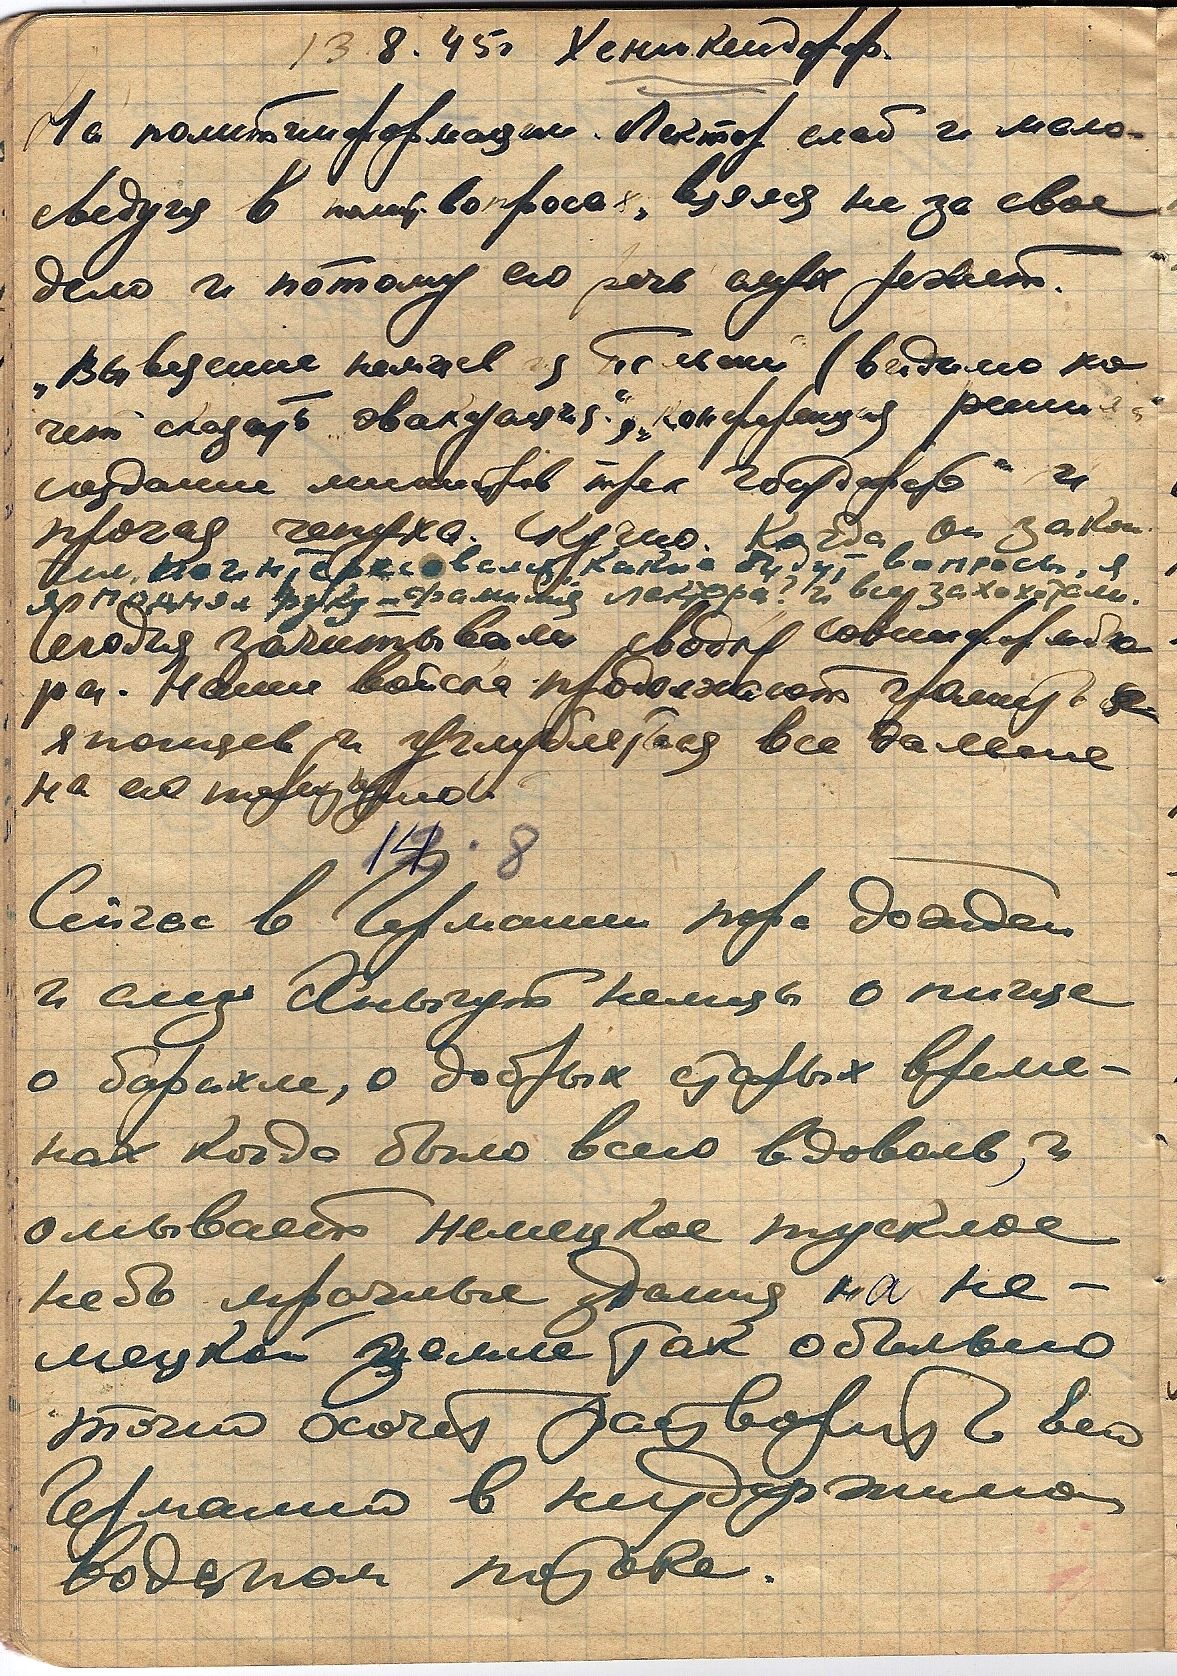 13.8.45г Хенникендорф.
На политинформации. Лектор слаб и мало-
сведущ в полит. вопросах, взялся не за свое
дело и потому его речь слух режет.
„Выведение немцев из Польши" (видимо хо
чет сказать „эвакуация", „конференция решила
создание министров трех государств" и
прочая чепуха. Скучно. Когда он закон-
чил, поинтересовался, какие будут вопросы, я
поднял руку – фамилия лектора? и все захохотали.
Сегодня зачитывали сводку совинформбю
ро. Наши войска продолжают громить
японцев и углубляться все дальше
на его территорию.
14.8
Сейчас в Германии пора дождей
и слез. Хнычут немцы о пище
о барахле, о добрых старых време-
нах когда было всего вдоволь, и
омывает немецкое тусклое
небо мрачные здания на не-
мецкой земле так обильно
точно хочет растворить всю
Германию в неудержимом
водяном потоке.